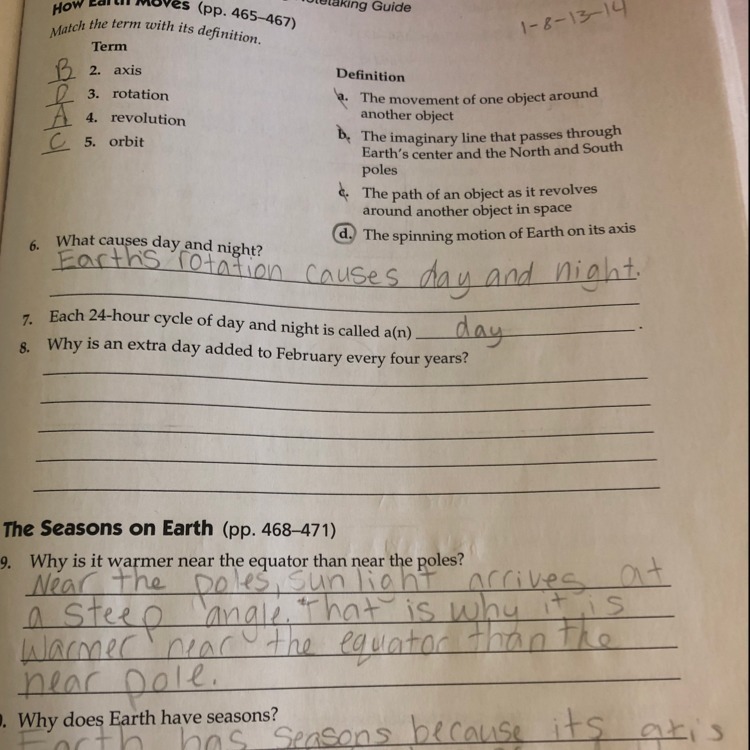 How Earth Moves (pp. 465–467)
Guide
1-8-13-14
Match the term with its definition.
Term
Definition
B 2. axis
D 3. rotation
A 4. revolution
C 5. orbit
a. The movement of one object around
another object
b. The imaginary line that passes through
Earth's center and the North and South
poles
c. The path of an object as it revolves
around another object in space
d. The spinning motion of Earth on its axis
6. What causes day and night?
Earth's rotation causes day and night.
7. Each 24-hour cycle of day and night is called a(n) day.
8. Why is an extra day added to February every four years?
The Seasons on Earth (pp. 468–471)
9. Why is it warmer near the equator than near the poles?
Near the poles, sunlight arrives at
a steep angle. That is why it is
warmer near the equator than the
near pole.
. Why does Earth have seasons?
Earth has seasons because its axis